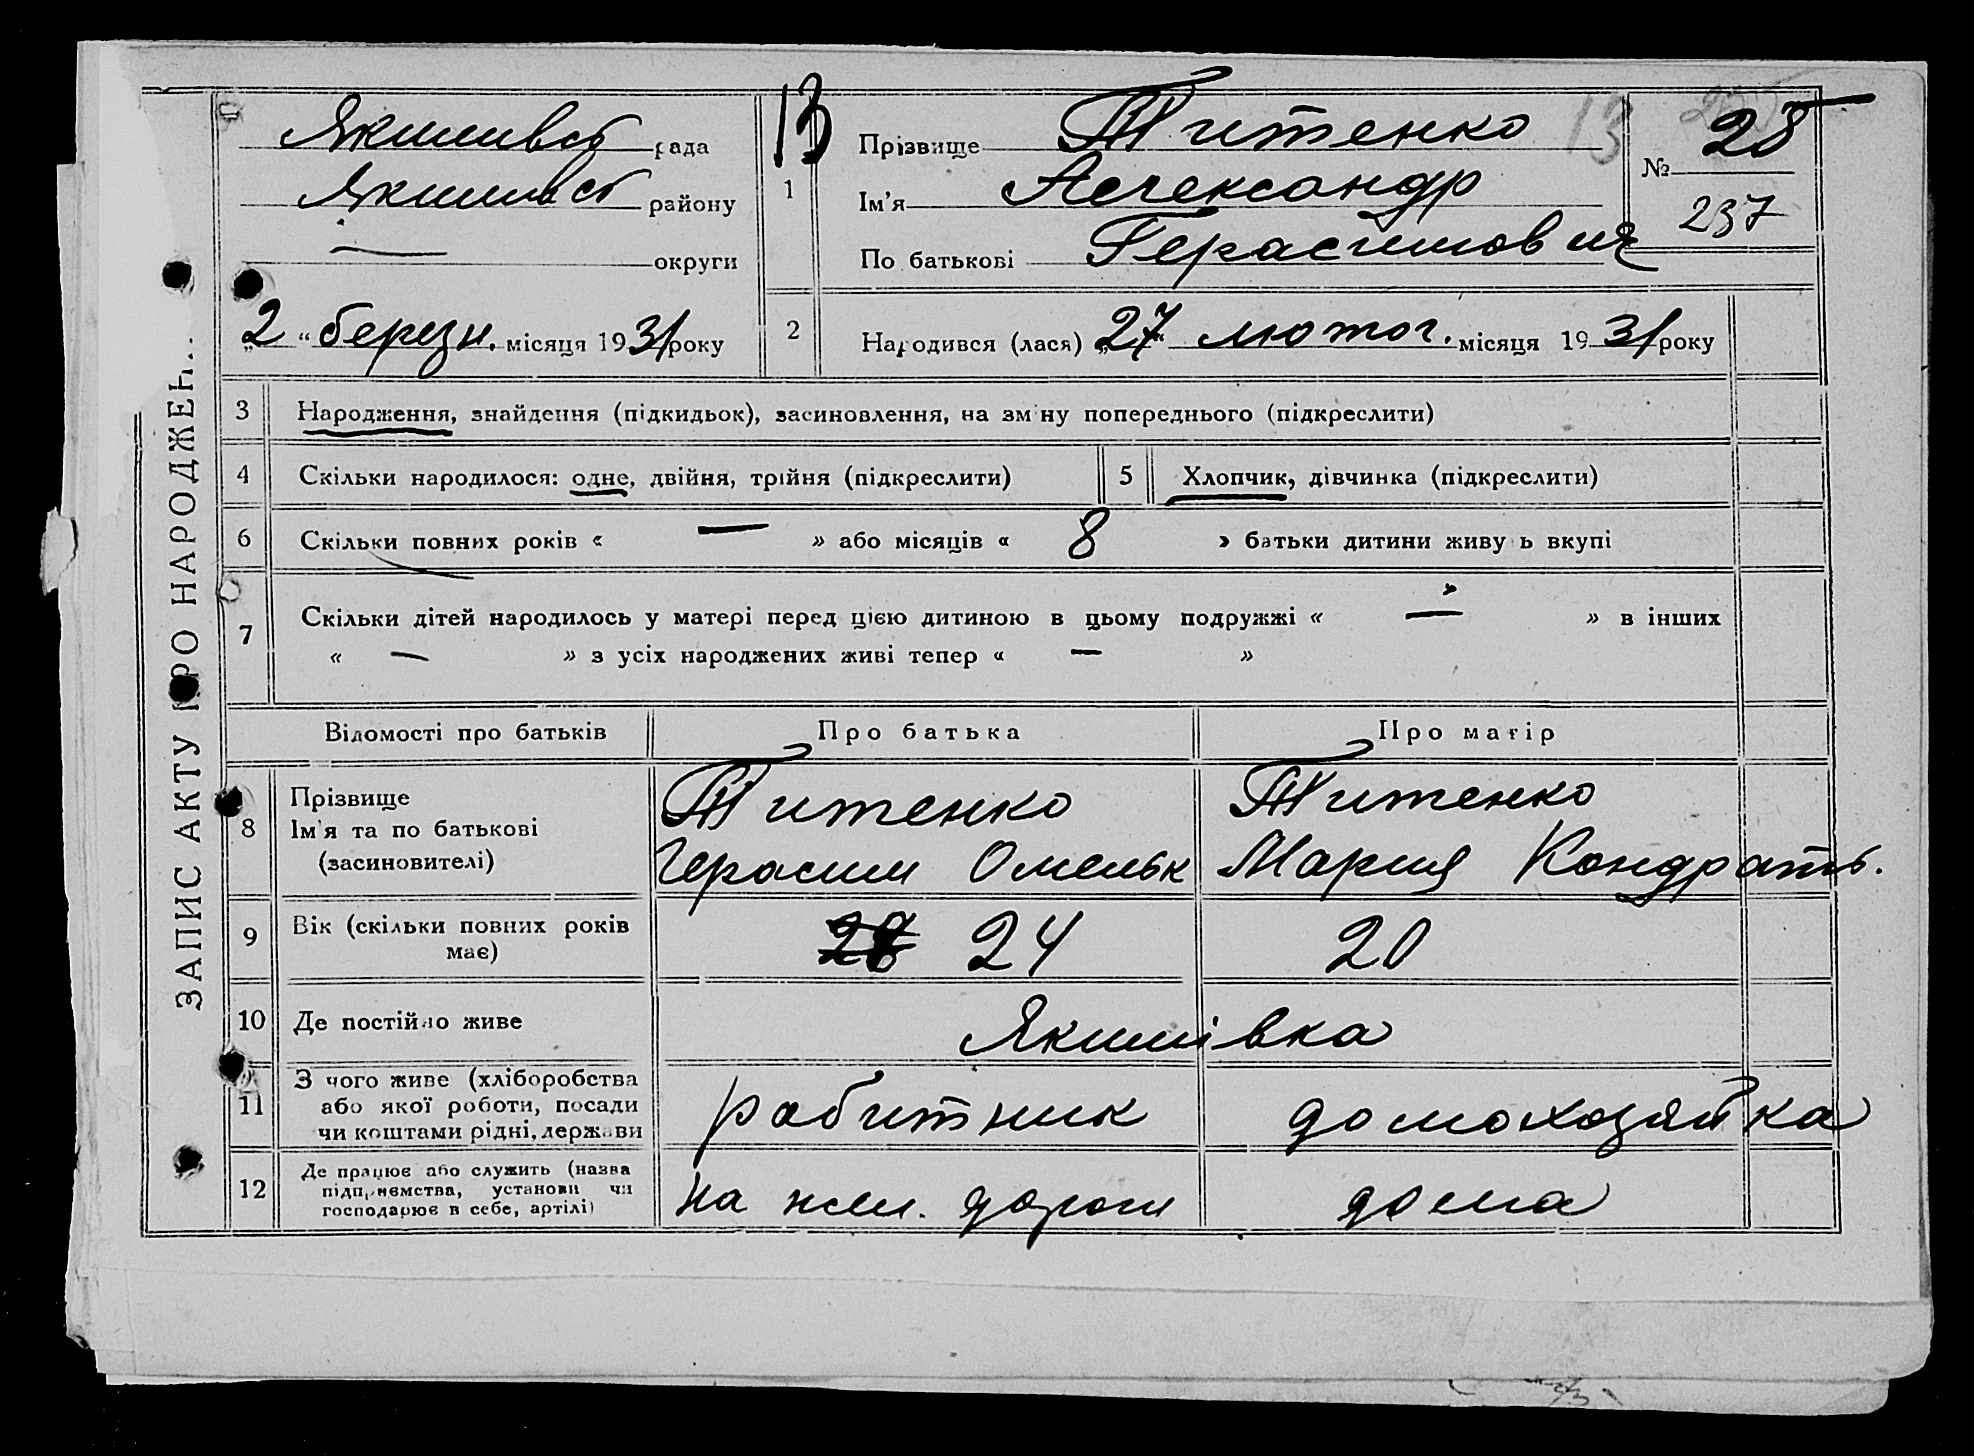 ЗАПИС АКТУ ПРО НАРОДЖЕН
Якимівсь рада
Якимівсь району
— округи
„2“ березн. місяця 1931 року
13
1
Прізвище Титенко
Ім'я Александр
По батькові Герасимович
13
№ 28
237
2
Народився (лася) „27“ лютог. місяця 1931 року
3 Народження, знайдення (підкидьок), засиновлення, на зміну попереднього (підкреслити)
4 Скільки народилося: одне, двійня, трійня (підкреслити)
5 Хлопчик, дівчинка (підкреслити)
6 Скільки повних років « — » або місяців « 8 » батьки дитини живуть вкупі
7 Скільки дітей народилось у матері перед цією дитиною в цьому подружжі « — » в інших
« — » з усіх народжених живі тепер « — »
Відомості про батьків Про батька Про матір
8 Прізвище
Ім'я та по батькові
(засиновителі)
Титенко
Герасим Омельк
Титенко
Мария Кондрать.
9 Вік (скільки повних років має)
24
20
10 Де постійно живе
Якимівка
11 З чого живе (хліборобства
або якої роботи, посади
чи коштами рідні, держави
робитник
домохозяйка
12 Де працює або служить (назва
підприємства, установи чи
господарює в себе, артілі)
на жел. дороги
дома